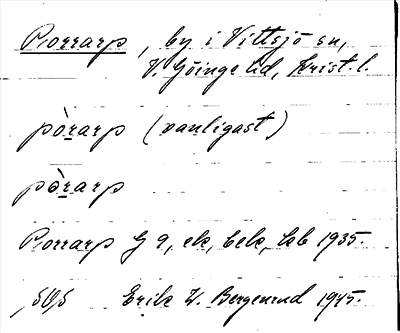 Porrarp, by i Vittsjö sn,
V. Göinge hd, Krist. l.
pòrarp (vanligast)
pòrarp
Porrarp G 9, ek, bek, kb 1935.
Erik W. Bergenrud 1945.